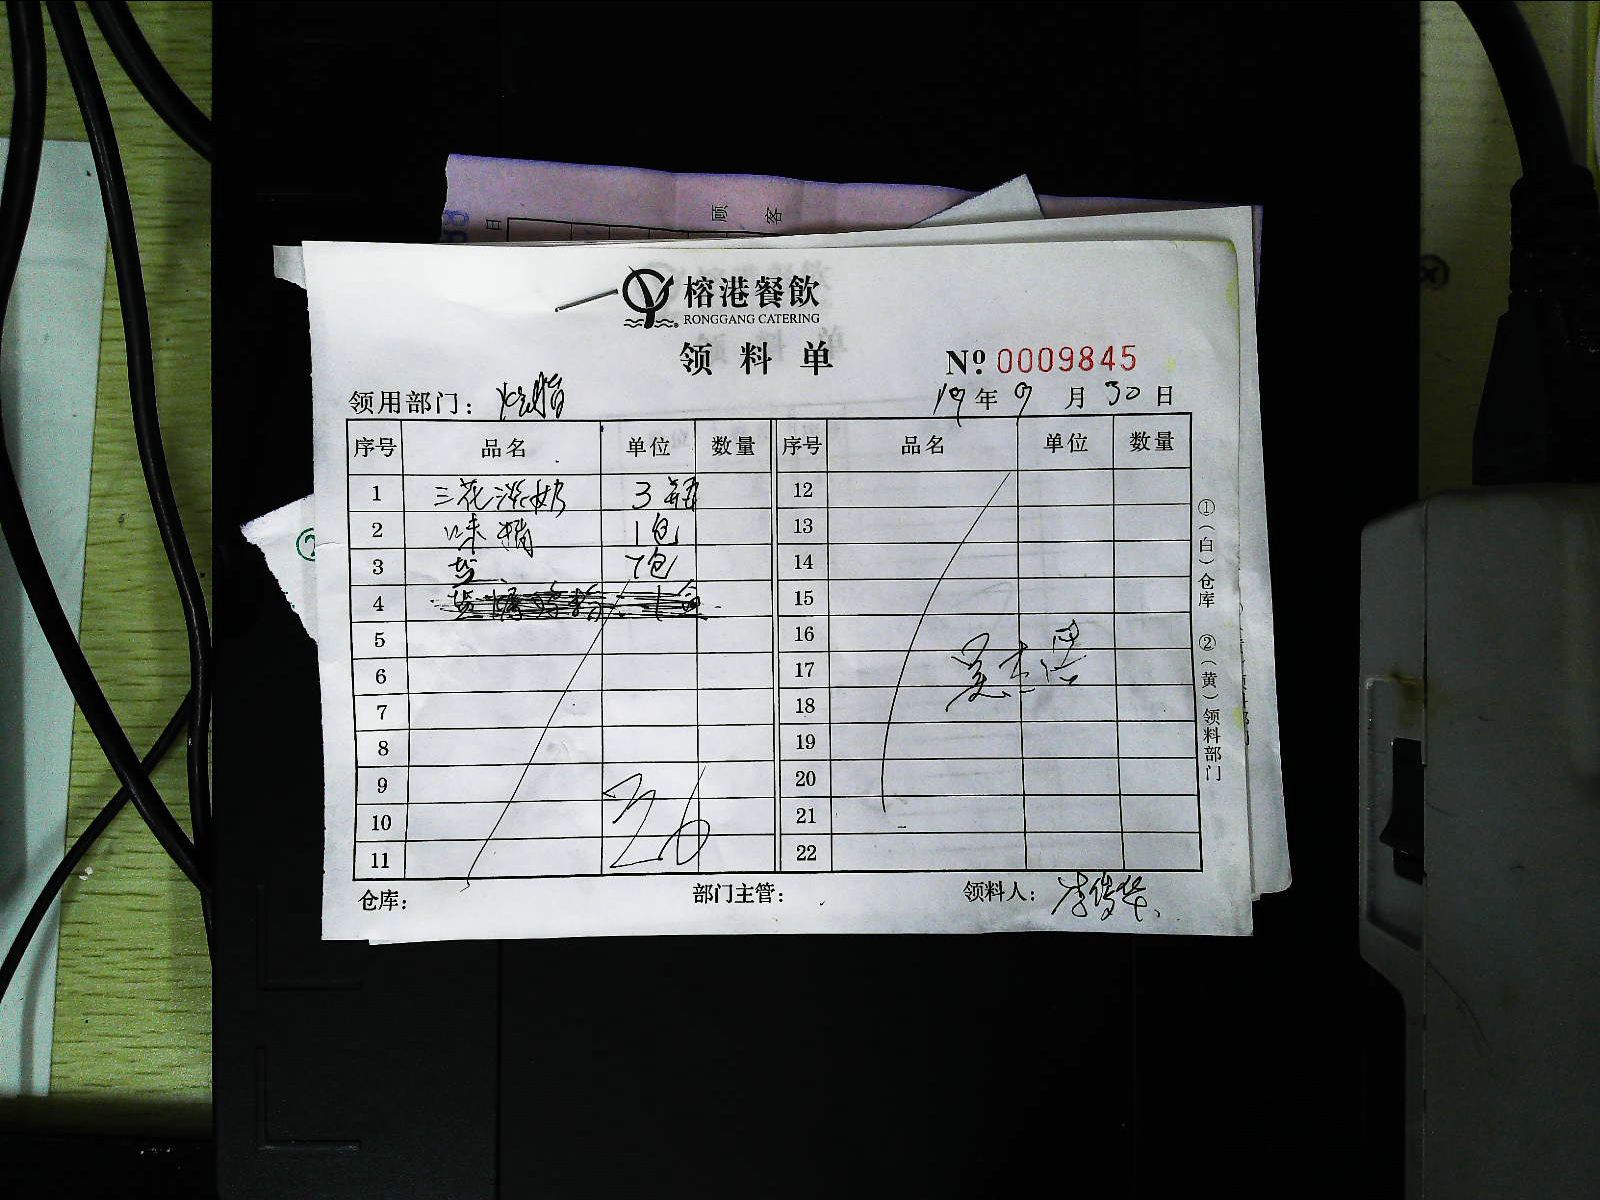 日 顾 客
榕港餐飲
RONGGANG CATERING
领料单
Nº 0009845
领用部门：
19年9月30日
序号 品名 单位 数量 序号 品名 单位 数量
1 三花淡奶 3瓶 12
2 味精 1包 13
3 盐 7包 14
4 15
5 16
6 17
7 18
8 19
9 20
10 21
11 22
26
仓库： 部门主管： 领料人：李俊华
①（白）仓库 ②（黄）领料部门